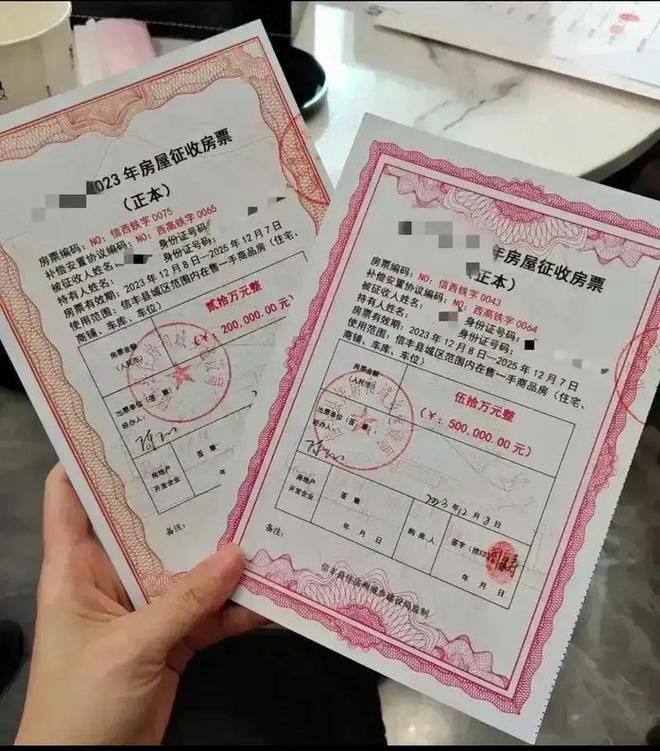 023年房屋征收房票
(正本)
房票编码: NO: 信西铁字0075
补偿安置协议编码: NO: 西高铁字0065
被征收人姓名: 身份证号码:
持有人姓名: 身份证号码:
房票有效期: 2023年12月8日—2025年12月7日
使用范围: 信丰县城区范围内在售一手商品房(住宅、
商铺、车库、车位)
房票金额
(人民币)
贰拾万元整
(¥: 200,000.00元)
出票单位(签章)
经办人:
房地产
开发企业
签章
年
备注:
年房屋征收房票
正本)
房票编码: NO: 信西铁字0043
补偿安置协议编码: NO: 西高铁字0064
被征收人姓名: 身份证号码:
持有人姓名: 身份证号码:
房票有效期: 2023年12月8日—2025年12月7日
使用范围: 信丰县城区范围内在售一手商品房(住宅、
商铺、车库、车位)
房票金额
(人民币)
伍拾万元整
(¥: 500,000.00元)
出票单位(签章)
经办人:
2023年12月8日
房地产
开发企业
签章
年月日
购房人
签字(捺印)
年月日
备注:
信丰县住房和城乡建设局监制